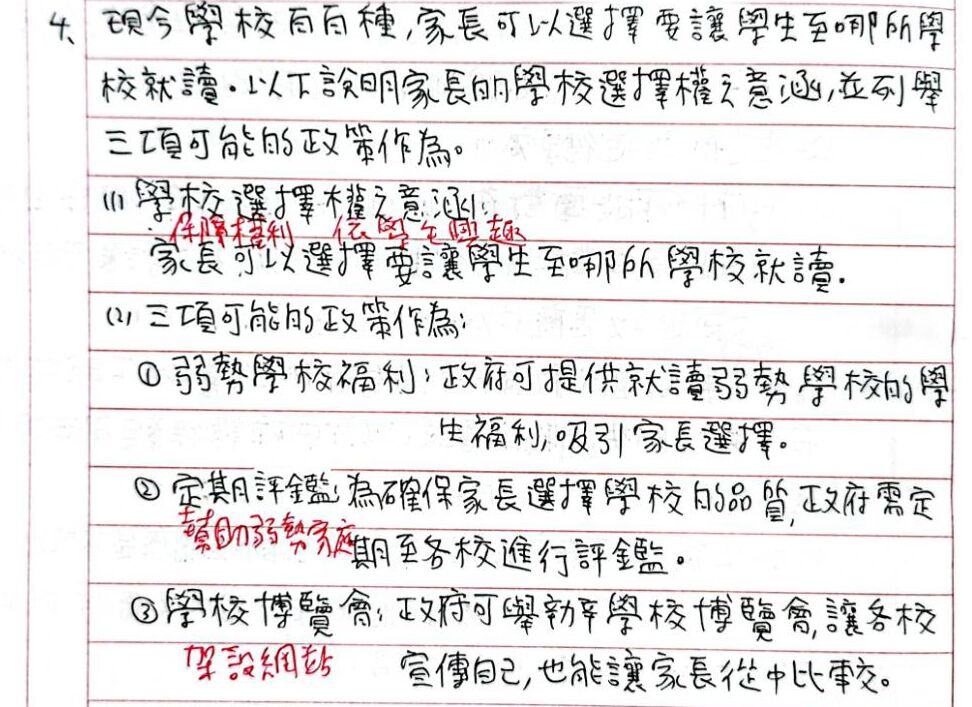 4、現今學校百百種，家長可以選擇要讓學生至哪所學
校就讀。以下說明家長的學校選擇權之意涵，並列舉
三項可能的政策作為。
(1) 學校選擇權之意涵：
保障權利 依學生興趣
家長可以選擇要讓學生至哪所學校就讀．
(2) 三項可能的政策作為：
① 弱勢學校福利：政府可提供就讀弱勢學校的學
生福利，吸引家長選擇。
② 定期評鑑：為確保家長選擇學校的品質，政府需定
幫助弱勢家庭
期至各校進行評鑑。
③ 學校博覽會：政府可舉辦學校博覽會，讓各校
架設網站
宣傳自己，也能讓家長從中比較。